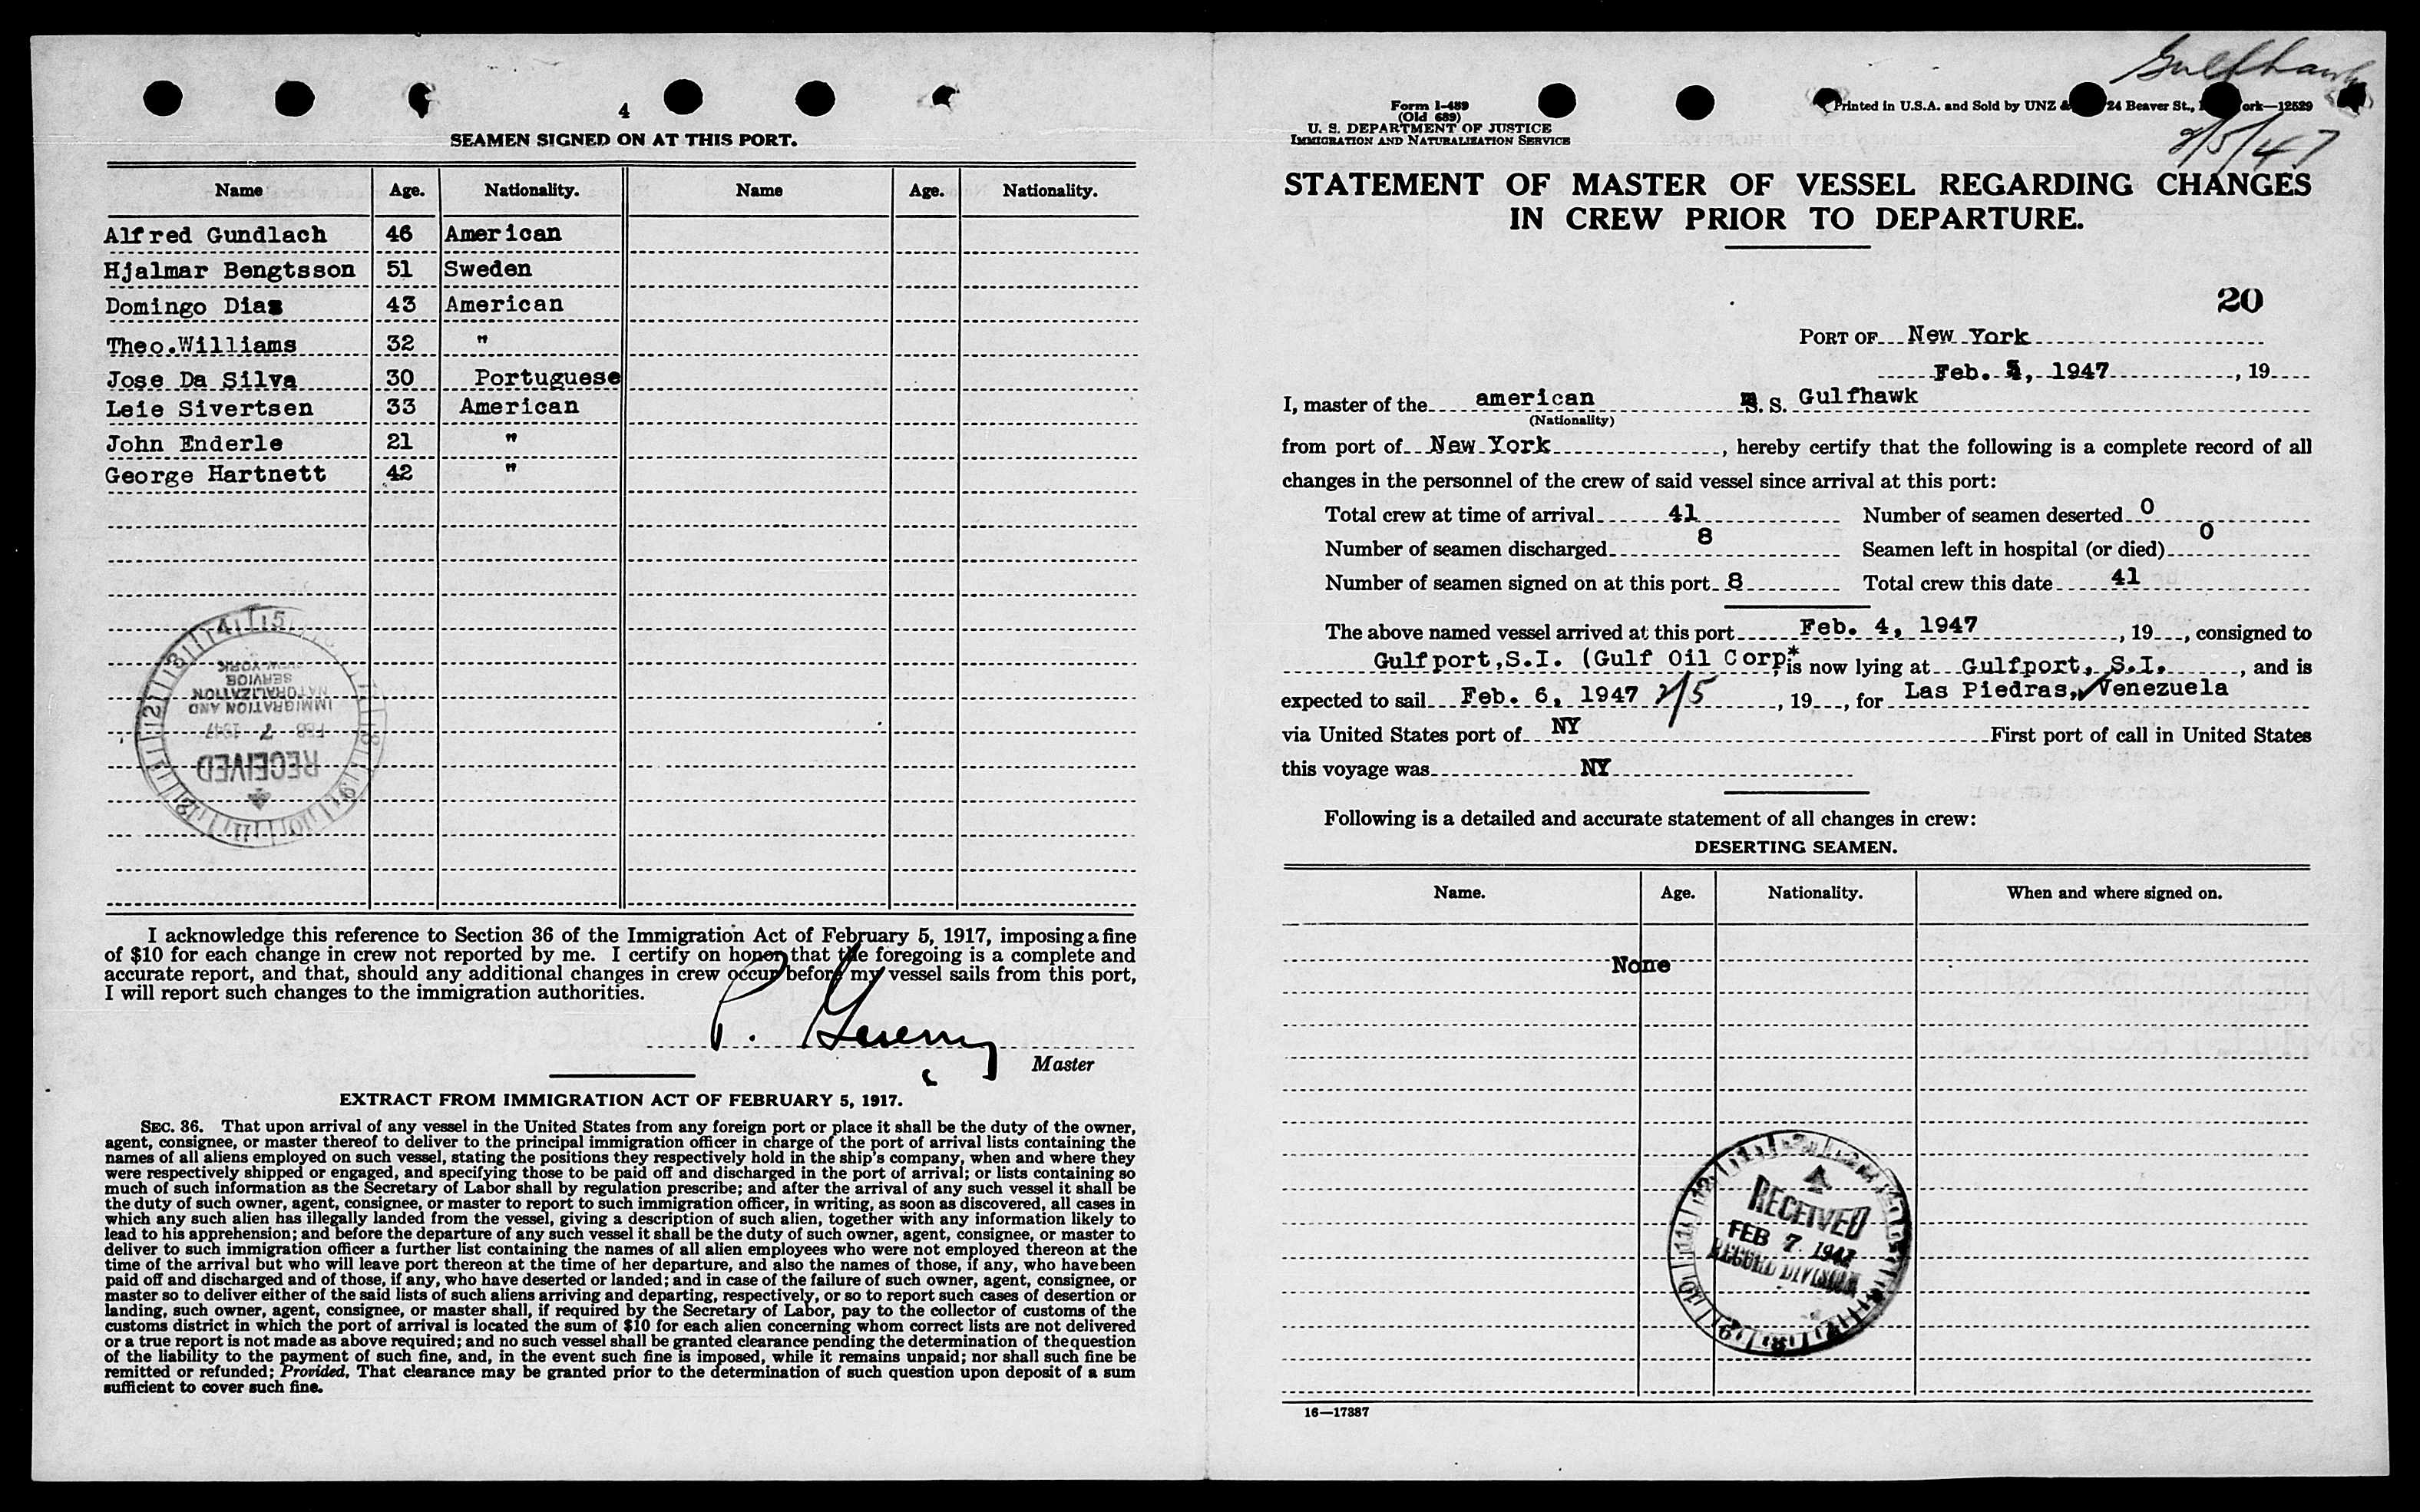 4
SEAMEN SIGNED ON AT THIS PORT.
Name Age. Nationality. Name Age. Nationality.
Alfred Gundlach 46 American
Hjalmar Bengtsson 51 Sweden
Domingo Dias 43 American
Theo.Williams 32 "
Jose Da Silva 30 Portuguese
Leie Sivertsen 33 American
John Enderle 21 "
George Hartnett 42 "
RECEIVED
FEB 7 1947
IMMIGRATION AND
NATURALIZATION
SERVICE
NEW YORK
I acknowledge this reference to Section 36 of the Immigration Act of February 5, 1917, imposing a fine
of $10 for each change in crew not reported by me. I certify on honor that the foregoing is a complete and
accurate report, and that, should any additional changes in crew occur before my vessel sails from this port,
I will report such changes to the immigration authorities.
P.
Master
EXTRACT FROM IMMIGRATION ACT OF FEBRUARY 5, 1917.
SEC. 36. That upon arrival of any vessel in the United States from any foreign port or place it shall be the duty of the owner,
agent, consignee, or master thereof to deliver to the principal immigration officer in charge of the port of arrival lists containing the
names of all aliens employed on such vessel, stating the positions they respectively hold in the ship's company, when and where they
were respectively shipped or engaged, and specifying those to be paid off and discharged in the port of arrival; or lists containing so
much of such information as the Secretary of Labor shall by regulation prescribe; and after the arrival of any such vessel it shall be
the duty of such owner, agent, consignee, or master to report to such immigration officer, in writing, as soon as discovered, all cases in
which any such alien has illegally landed from the vessel, giving a description of such alien, together with any information likely to
lead to his apprehension; and before the departure of any such vessel it shall be the duty of such owner, agent, consignee, or master to
deliver to such immigration officer a further list containing the names of all alien employees who were not employed thereon at the
time of the arrival but who will leave port thereon at the time of her departure, and also the names of those, if any, who have been
paid off and discharged and of those, if any, who have deserted or landed; and in case of the failure of such owner, agent, consignee, or
master so to deliver either of the said lists of such aliens arriving and departing, respectively, or so to report such cases of desertion or
landing, such owner, agent, consignee, or master shall, if required by the Secretary of Labor, pay to the collector of customs of the
customs district in which the port of arrival is located the sum of $10 for each alien concerning whom correct lists are not delivered
or a true report is not made as above required; and no such vessel shall be granted clearance pending the determination of the question
of the liability to the payment of such fine, and, in the event such fine is imposed, while it remains unpaid; nor shall such fine be
remitted or refunded; Provided, That clearance may be granted prior to the determination of such question upon deposit of a sum
sufficient to cover such fine.
Gulfhawk
2/5/47
Form I-489
(Old 689)
U. S. DEPARTMENT OF JUSTICE
IMMIGRATION AND NATURALIZATION SERVICE
Printed in U.S.A. and Sold by UNZ & 24 Beaver St., ork—12529
STATEMENT OF MASTER OF VESSEL REGARDING CHANGES
IN CREW PRIOR TO DEPARTURE.
20
PORT OF New York
Feb. 5, 1947, 19
I, master of the american M. S. Gulfhawk
(Nationality)
from port of New York, hereby certify that the following is a complete record of all
changes in the personnel of the crew of said vessel since arrival at this port:
Total crew at time of arrival 41 Number of seamen deserted 0
Number of seamen discharged 8 Seamen left in hospital (or died) 0
Number of seamen signed on at this port 8 Total crew this date 41
The above named vessel arrived at this port Feb. 4, 1947, 19, consigned to
Gulfport,S.I. (Gulf Oil Corp*, is now lying at Gulfport, S.I., and is
expected to sail Feb. 6, 1947 2/5, 19, for Las Piedras, Venezuela
via United States port of NY First port of call in United States
this voyage was NY
Following is a detailed and accurate statement of all changes in crew:
DESERTING SEAMEN.
Name. Age. Nationality. When and where signed on.
None
RECEIVED
FEB 7 1947
RECORD DIVISION
16—17387